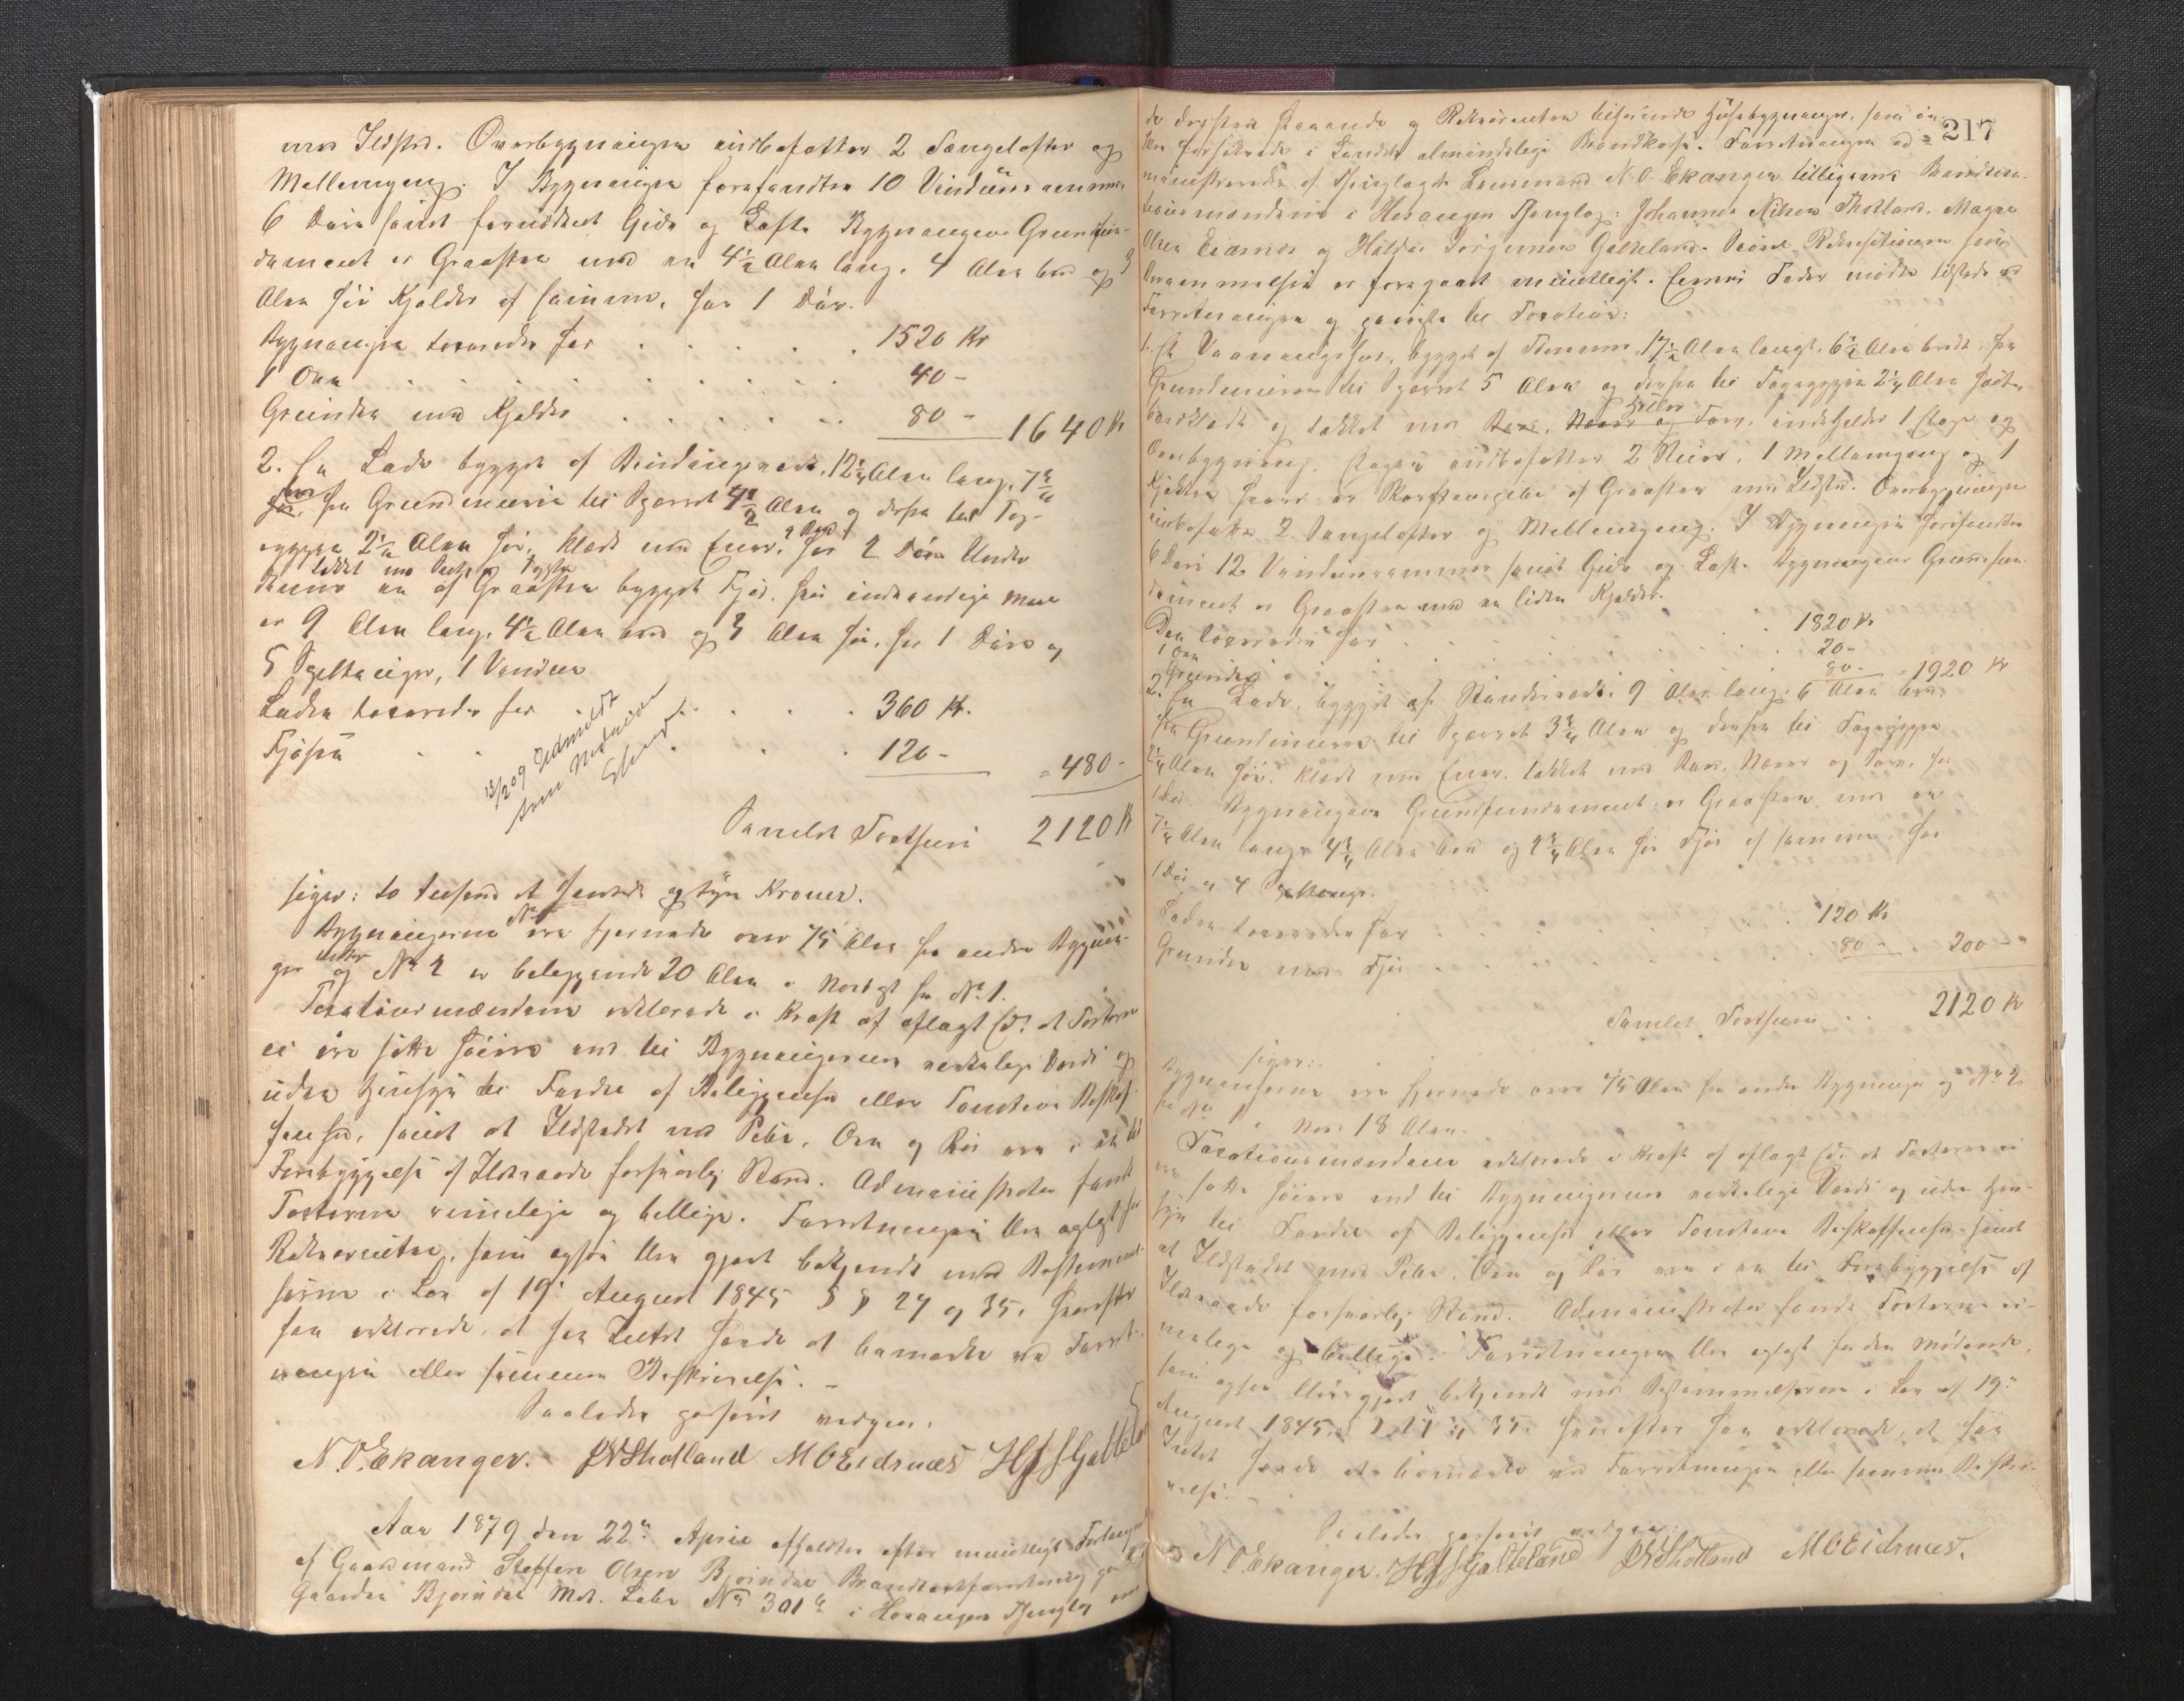 med Ildsted. Overbygningen indbefatter 2 Sængelofter og
Mellemgang. I Bygningen forefandtes 10 Vinduesrammer
6 Døre samt fornødent Gulv og Loft. Bygningens Grundfun-
dament er Graasten med en 4½ Alen lang, 4 Alen bred og 3
Alen høi Kjelder af samme, har 1 Dør.
Bygningen taxeredes for . . . . . 1520 Kr
1 Ovn . . . . . . . . . . 40 –
Grunden med Kjelder . . . . . . 80 – 1640 Kr
2. En Lade bygget af Bindingsværk, 12¼ Alen lang, 7¾
bred, fra Grundmuren til Spærret 4½ Alen og derfra til Tag-
ryggen 2¼ Alen høi, klædt med Bord, har 2 Døre Under
tækket med
denne en af Graasten bygget Fjøs, hvis indvendige Maal
er 9 Alen lang, 4½ Alen bred og 3 Alen høi, har 1 Dør og
5 Spiltauger, 1 Vindue
Laden taxeredes for . . . . 360 Kr.
Fjøsen . . . . . 120 – = 480 –
13/2 09 Udmeldt
Samlet Taxtsum 2120 Kr
siger: to tusend et hundrede og tyve Kroner.
Bygningerne ere fjernede over 75 Alen fra andre Bygnin-
ger og No 2 er beliggende 20 Alen i Nordost fra No 1.
Taxationsmændene erklærede i Kraft af aflagt Ed: at Taxterne
ei ere satte høiere end til Bygningernes virkelige Værdi og
uden Hensyn til Fordel af Beliggenhed eller Tomtens Beskaf-
fenhed, samt at Ildstedet med Pibe, Ovn og Rør ere i en til
Forebyggelse af Ildsvaade forsvarlig Stand. Administrator fandt
Taxterne rimelige og billige. Forretningen blev oplæst for
Rekvirenten, som ogsaa blev gjort bekjendt med Bestemmel-
serne i Lov af 19: August 1845 §§ 27 og 35, hvorefter
han erklærede, at han Intet havde at bemærke ved Forret-
ningen eller sammes Beskrivelse. –
Saaledes passeret vedgaaes.
N. O. Ekanger. JNThotland MOEidsnæs HJSGalteland
Aar 1879 den 22de April afholdtes efter mundtligt Forlangende
af Gaardmand Steffen Olsen Bjørndal Brandtaxtforretning paa
Gaarden Bjørndal Mat. Løbe No 301 a i Hosanger Thinglag over
217
de dersteds staaende og Rekvirenten tilhørende Husebygninger, som øn-
kes forsikrede i Landets almindelige Brandkasse. Forretningen ad-
ministreredes af Thinglagets Lensmand N. O. Ekanger tilligemed Brandtaxa-
tionsmændene i Hosangers Thinglag: Johannes Nilsen Thotland, Mogns
Olsen Eidsnes og Haldor Jørgensen Galteland. Saavel Rekvisitionen som
Berammelsen er foregaaet mundtligt. Eieren mødte tilstede ved
Forretningen og paaviste til Taxation:
1. Et Vaaningshus, bygget af Tømmer, 17½ Alen langt, 6½ Alen bredt, fra
Grundmuren til Spærret 5 Alen og derfra til Tagryggen 2¼ Alen høit,
bordklædt og tækket med Heller indeholder 1 Etage og
Overbygning. Etagen indbefatter 2 Stuer, 1 Mellemgang og 1
Kjøkken hvori er Skorstenspibe af Graasten med Ildsted. Overbygningen
indbefatter 2 Sængelofter og Mellemgang. I Bygningen forefandtes
6 Døre 12 Vinduesrammer samt Gulv og Loft. Bygningens Grundfun-
dament er Graasten med en liden Kjelder.
Den taxeredes for . . . . . . 1820 Kr
1 Ovn . . . . . . . . 20 –
Grunden . . . . . . . 80 – = 1920 Kr
2. En Lade, bygget af Stænderværk, 9 Alen lang, 6 Alen bred,
fra Grundmuren til Spærret 3¾ Alen og derfra til Tagryggen
2¼ Alen høi, klædt med Bord, tækket med Bord, Næver og Torv, har
1 Dør. Bygningens Grundfundament er Graasten med en
7½ Alen lang, 4¼ Alen bred og 2¾ Alen høi Fjøs af samme, har
1 Dør og 4 Spiltauge.
Laden taxeredes for . . . . . . 120 Kr
Grunden med Fjøs . . . . . . 80 – . 200 –
Samlet Taxtsum . . 2120 Kr
siger:
Bygningerne ere fjernede over 75 Alen fra andre Bygninger og No 2
fra No 1 i Nord 18 Alen.
Taxationsmændene erklærede i Kraft af aflagt Ed: at Taxterne ei
ere satte høiere end til Bygningernes virkelige Værdi og uden Hen-
syn til Fordel af Beliggenhed eller Tomtens Beskaffenhed samt
at Ildstedet med Pibe, Ovn og Rør ere i en til Forebyggelse af
Ildsvaade forsvarlig Stand. Administrator fandt Taxterne ri-
melige og billige. Forretningen blev oplæst for den mødende,
som ogsaa blev gjort bekjendt med Bestemmelserne i Lov af 19:
August 1845 §§ 27 og 35, hvorefter han erklærede, at han
Intet havde at bemærke ved Forretningen eller sammes Beskri-
velse. –
Saaledes passeret vedgaaes:
N O Ekanger. HJSGalteland JNThotland MOEidsnæs.